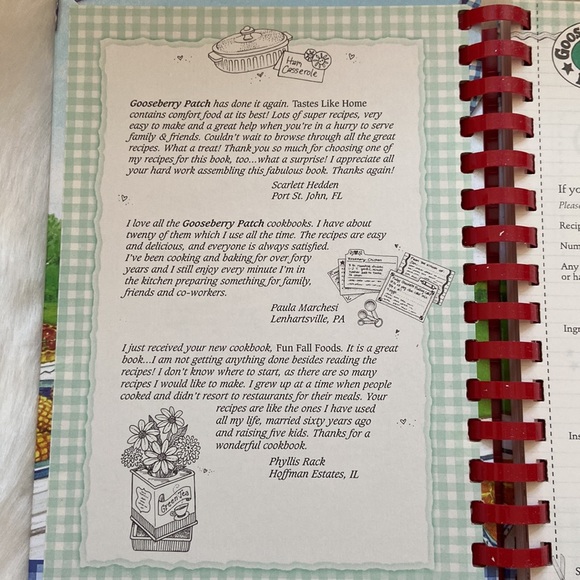 Ham
Casserole
Gooseberry Patch has done it again. Tastes Like Home
contains comfort food at its best! Lots of super recipes, very
easy to make and a great help when you're in a hurry to serve
family & friends. Couldn't wait to browse through all the great
recipes. What a treat! Thank you so much for choosing one of
my recipes for this book, too...what a surprise! I appreciate all
your hard work assembling this fabulous book. Thanks again!
Scarlett Hedden
Port St. John, FL
I love all the Gooseberry Patch cookbooks. I have about
twenty of them which I use all the time. The recipes are easy
and delicious, and everyone is always satisfied.
I've been cooking and baking for over forty
years and I still enjoy every minute I'm in
the kitchen preparing something for family,
friends and co-workers.
Paula Marchesi
Lenhartsville, PA
I just received your new cookbook, Fun Fall Foods. It is a great
book...I am not getting anything done besides reading the
recipes! I don't know where to start, as there are so many
recipes I would like to make. I grew up at a time when people
cooked and didn't resort to restaurants for their meals. Your
recipes are like the ones I have used
all my life, married sixty years ago
and raising five kids. Thanks for a
wonderful cookbook.
Phyllis Rack
Hoffman Estates, IL
Green Tea
If yo
Pleas
Recip
Num
Any
or ha
Ingr
Ins
S